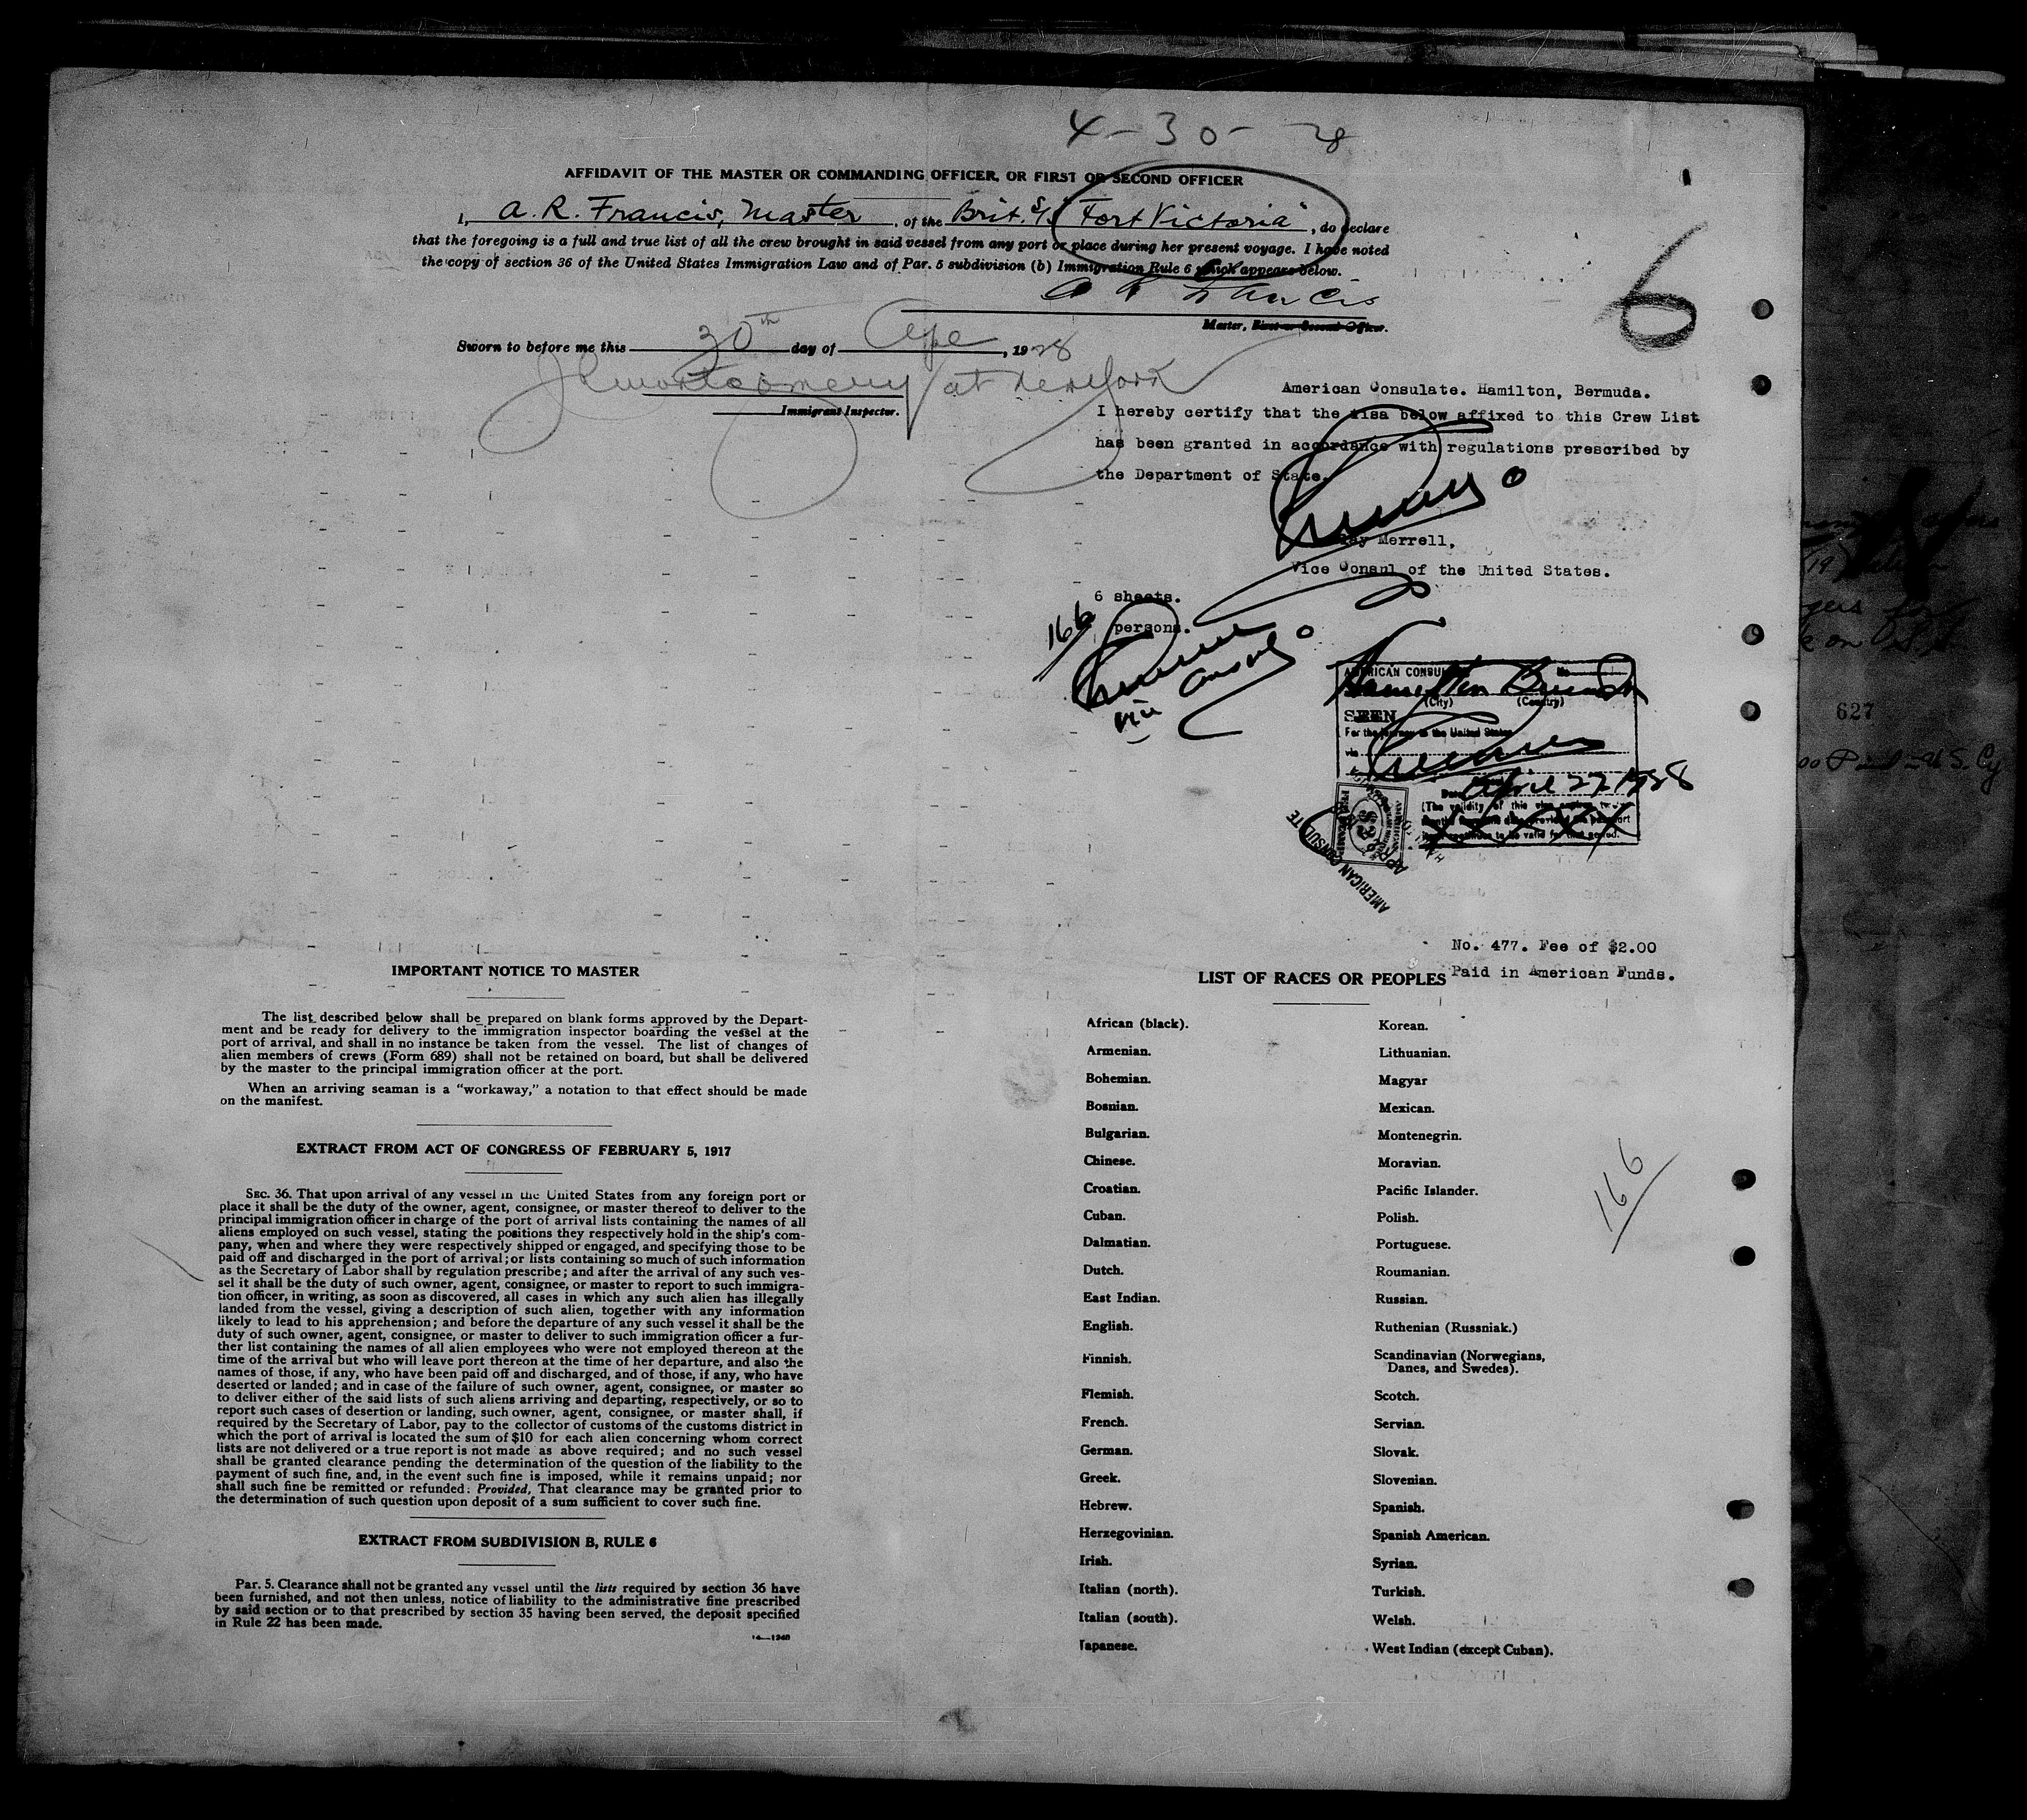 4-30-28
AFFIDAVIT OF THE MASTER OR COMMANDING OFFICER, OR FIRST OR SECOND OFFICER
I, A. R. Francis, Master, of the Brit. S/S "Fort Victoria", do declare
that the foregoing is a full and true list of all the crew brought in said vessel from any port or place during her present voyage. I have noted
the copy of section 36 of the United States Immigration Law and of Par. 5 subdivision (b) Immigration Rule 6 which appears below.
A R Francis
Master, First or Second Officer.
6
Sworn to before me this 30th day of Ape, 1928
at New York
Immigrant Inspector.
American Consulate. Hamilton, Bermuda.
I hereby certify that the visa below affixed to this Crew List
has been granted in accordance with regulations prescribed by
the Department of State.
Merrell,
Vice Consul of the United States.
6 sheets.
166 persons.
AMERICAN CONSUL
No
Hamilton Bermuda
(City) (Country)
SEEN
For the journey to the United States
via
Date April 27 1928
(The validity of this visa expires
months from this date provided the passport
continues to be valid for that period.
$2
AMERICAN CONSULATE
627
No. 477. Fee of $2.00
Paid in American Funds.
IMPORTANT NOTICE TO MASTER
The list described below shall be prepared on blank forms approved by the Depart-
ment and be ready for delivery to the immigration inspector boarding the vessel at the
port of arrival, and shall in no instance be taken from the vessel. The list of changes of
alien members of crews (Form 689) shall not be retained on board, but shall be delivered
by the master to the principal immigration officer at the port.
When an arriving seaman is a "workaway," a notation to that effect should be made
on the manifest.
EXTRACT FROM ACT OF CONGRESS OF FEBRUARY 5, 1917
SEC. 36. That upon arrival of any vessel in the United States from any foreign port or
place it shall be the duty of the owner, agent, consignee, or master thereof to deliver to the
principal immigration officer in charge of the port of arrival lists containing the names of all
aliens employed on such vessel, stating the positions they respectively hold in the ship's com-
pany, when and where they were respectively shipped or engaged, and specifying those to be
paid off and discharged in the port of arrival; or lists containing so much of such information
as the Secretary of Labor shall by regulation prescribe; and after the arrival of any such ves-
sel it shall be the duty of such owner, agent, consignee, or master to report to such immigra-
tion officer, in writing, as soon as discovered, all cases in which any such alien has illegally
landed from the vessel, giving a description of such alien, together with any information
likely to lead to his apprehension; and before the departure of any such vessel it shall be the
duty of such owner, agent, consignee, or master to deliver to such immigration officer a fur-
ther list containing the names of all alien employees who were not employed thereon at the
time of the arrival but who will leave port thereon at the time of her departure, and also the
names of those, if any, who have been paid off and discharged, and of those, if any, who have
deserted or landed; and in case of the failure of such owner, agent, consignee, or master so
to deliver either of the said lists of such aliens arriving and departing, respectively, or so to
report such cases of desertion or landing, such owner, agent, consignee, or master shall, if
required by the Secretary of Labor, pay to the collector of customs of the customs district in
which the port of arrival is located the sum of $10 for each alien concerning whom correct
lists are not delivered or a true report is not made as above required; and no such vessel
shall be granted clearance pending the determination of the question of the liability to the
payment of such fine, and, in the event such fine is imposed, while it remains unpaid; nor
shall such fine be remitted or refunded: Provided, That clearance may be granted prior to
the determination of such question upon deposit of a sum sufficient to cover such fine.
EXTRACT FROM SUBDIVISION B, RULE 6
Par. 5. Clearance shall not be granted any vessel until the lists required by section 36 have
been furnished, and not then unless, notice of liability to the administrative fine prescribed
by said section or to that prescribed by section 35 having been served, the deposit specified
in Rule 22 has been made.
14—1240
LIST OF RACES OR PEOPLES
African (black).
Armenian.
Bohemian.
Bosnian.
Bulgarian.
Chinese.
Croatian.
Cuban.
Dalmatian.
Dutch.
East Indian.
English.
Finnish.
Flemish.
French.
German.
Greek.
Hebrew.
Herzegovinian.
Irish.
Italian (north).
Italian (south).
Japanese.
Korean.
Lithuanian.
Magyar
Mexican.
Montenegrin.
Moravian.
Pacific Islander.
Polish.
Portuguese.
Roumanian.
Russian.
Ruthenian (Russniak.)
Scandinavian (Norwegians,
Danes, and Swedes).
Scotch.
Servian.
Slovak.
Slovenian.
Spanish.
Spanish American.
Syrian.
Turkish.
Welsh.
West Indian (except Cuban).
166